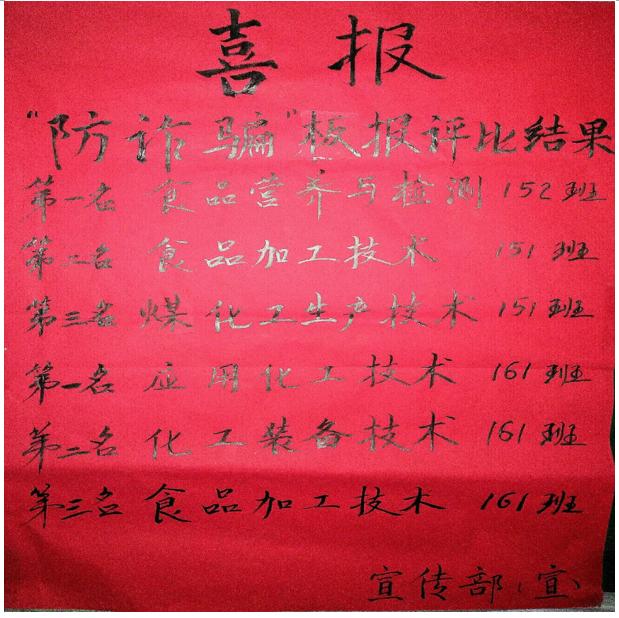 喜报
“防诈骗”板报评比结果
第一名 食品营养与检测 152班
第二名 食品加工技术 151班
第三名 煤化工生产技术 151班
第一名 应用化工技术 161班
第二名 化工装备技术 161班
第三名 食品加工技术 161班
宣传部(宣)